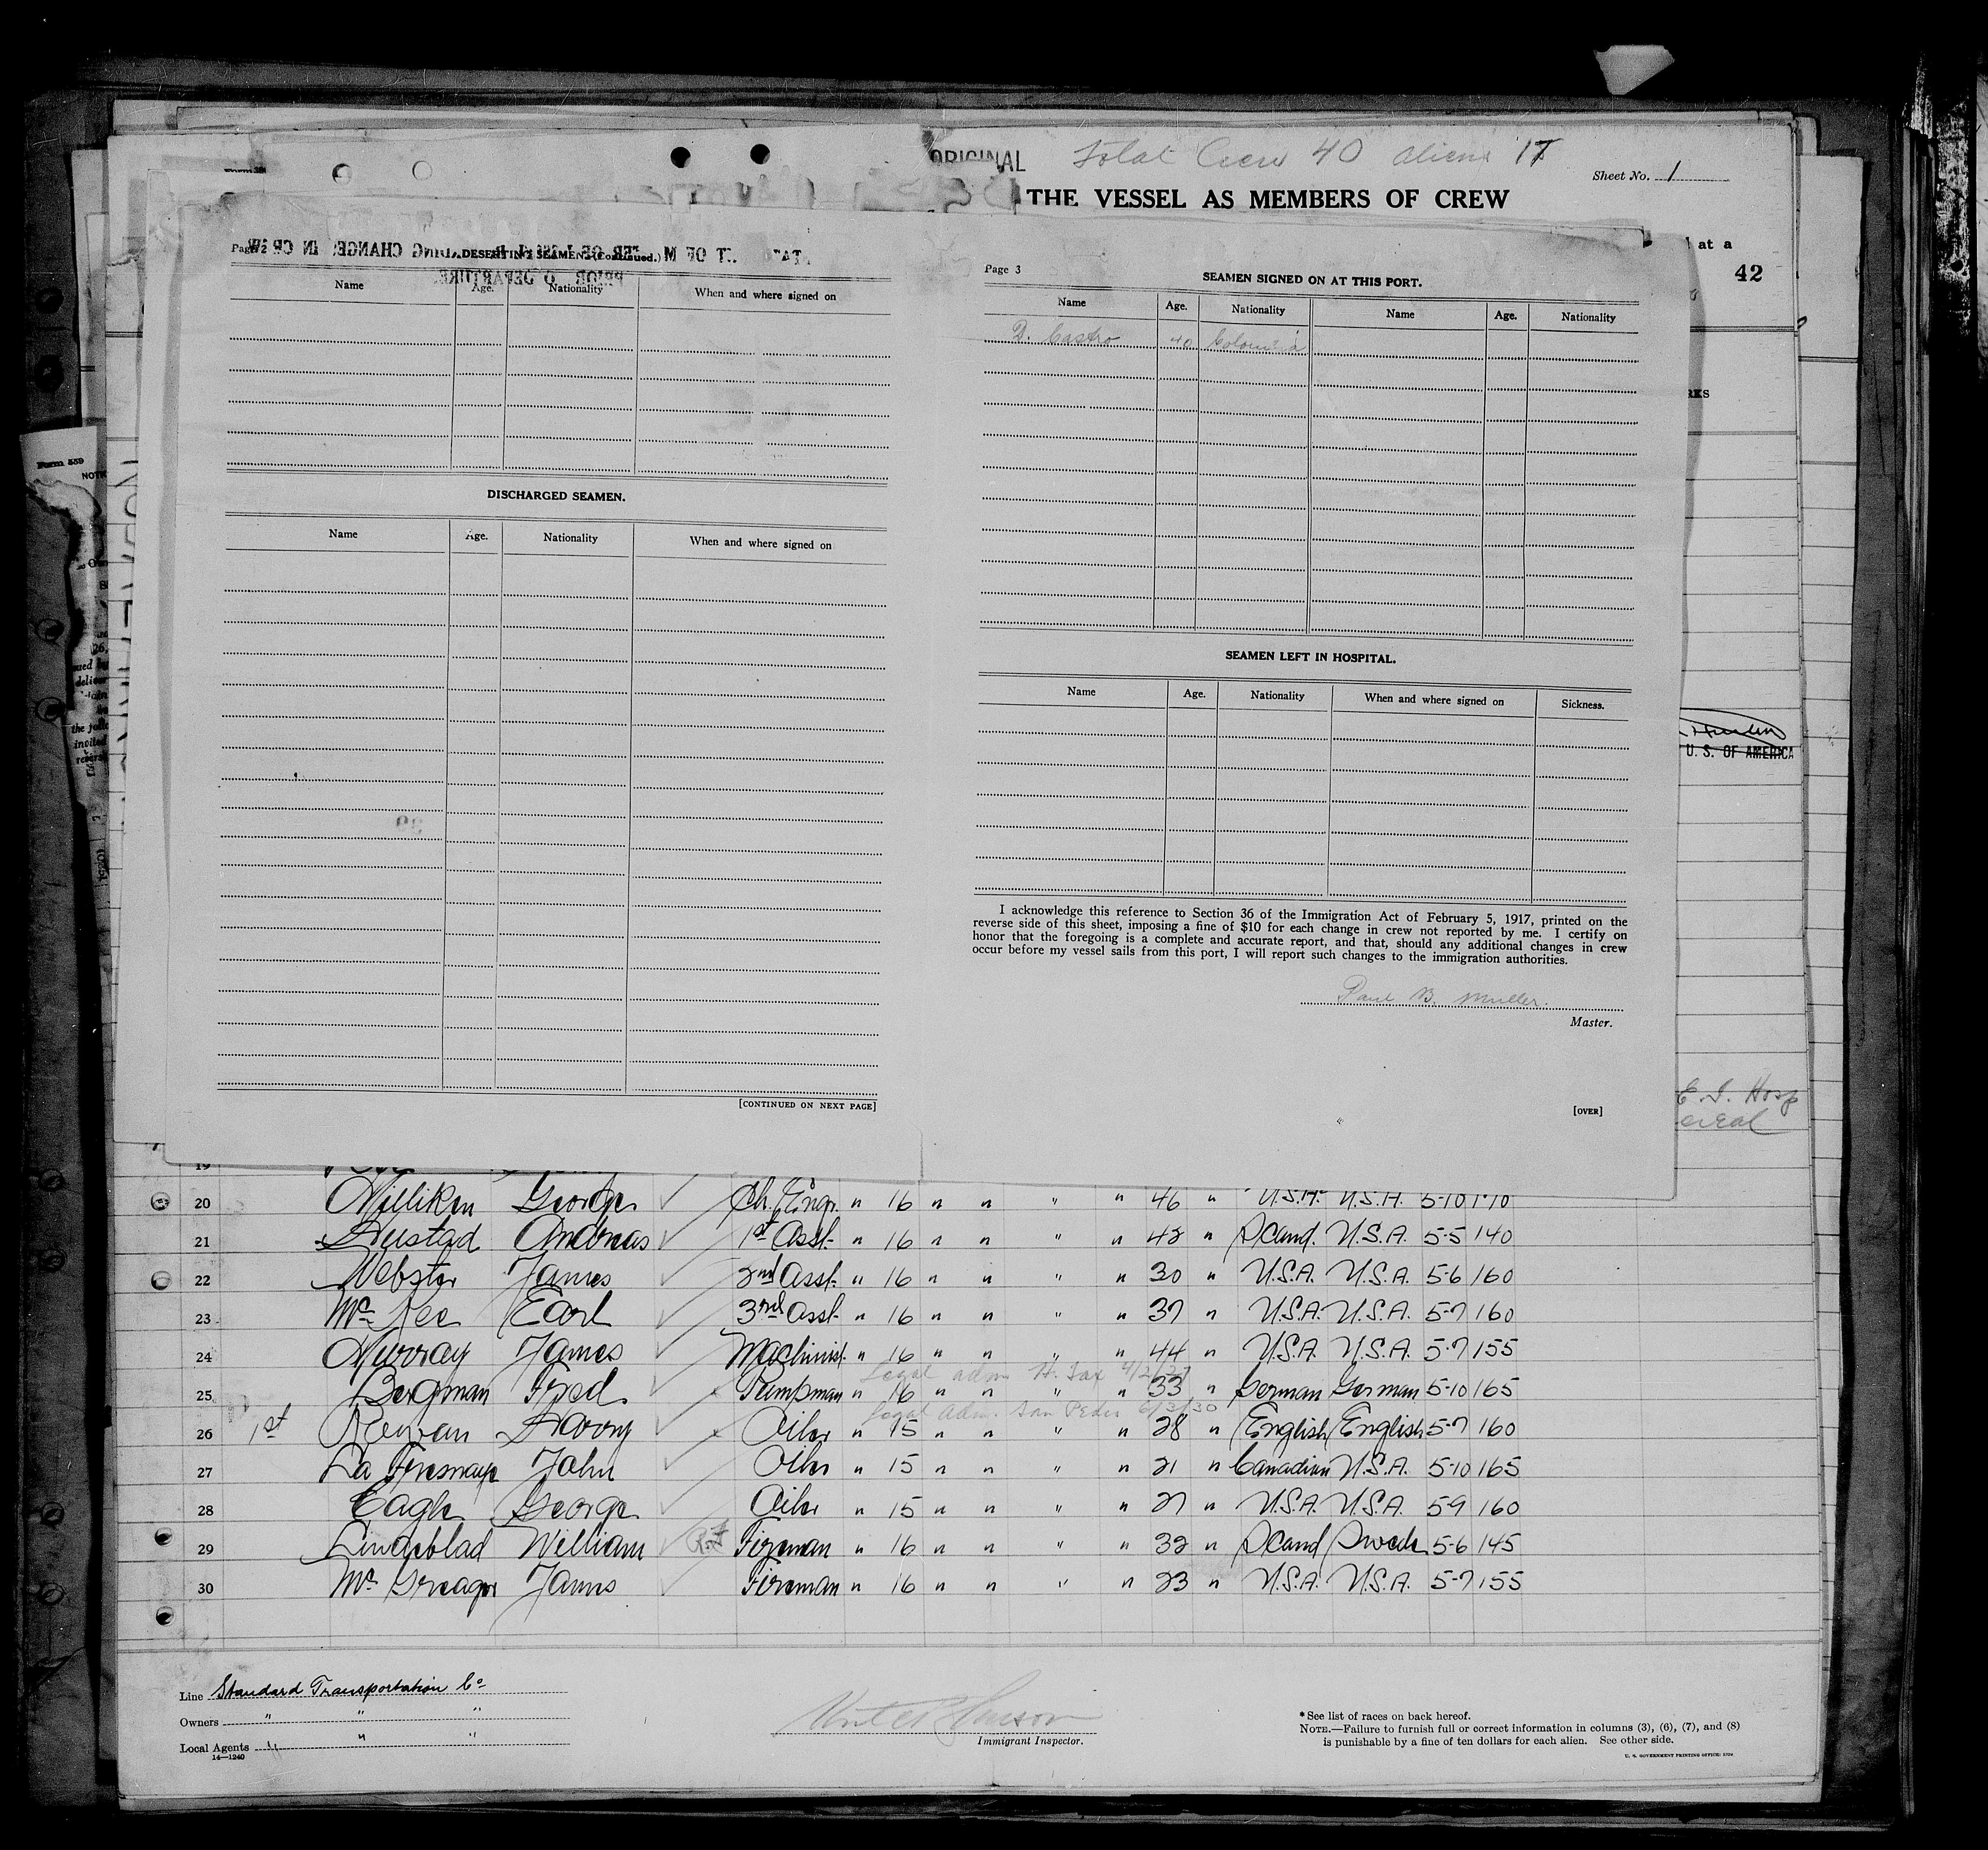 ORIGINAL Total Crew 40 aliens 17
Sheet No. 1
THE VESSEL AS MEMBERS OF CREW
at a
42
RKS
Page 2 DESERTING SEAMEN (Continued.)
Name Age. Nationality When and where signed on
DISCHARGED SEAMEN.
Name Age. Nationality When and where signed on
[CONTINUED ON NEXT PAGE]
Page 3
SEAMEN SIGNED ON AT THIS PORT.
Name Age. Nationality Name Age. Nationality
D. Castro 40 Colombia
SEAMEN LEFT IN HOSPITAL.
Name Age. Nationality When and where signed on Sickness.
I acknowledge this reference to Section 36 of the Immigration Act of February 5, 1917, printed on the
reverse side of this sheet, imposing a fine of $10 for each change in crew not reported by me. I certify on
honor that the foregoing is a complete and accurate report, and that, should any additional changes in crew
occur before my vessel sails from this port, I will report such changes to the immigration authorities.
Paul B. Muller.
Master.
[OVER]
Form 559
U. S. OF AMERICA
E. I. Hosp
19
20 Milliken George Ch. Engr. " 16 " " " " 46 " U.S.A. U.S.A. 5-10 170
21 Hustad Andreas 1st Asst. " 16 " " " " 42 " Scand. U.S.A. 5-5 140
22 Webster James 2nd Asst. " 16 " " " " 30 " U.S.A. U.S.A. 5-6 160
23 Mc Kee Earl 3rd Asst. " 16 " " " " 37 " U.S.A. U.S.A. 5-7 160
24 Murray James Machinist. " 16 " " " " 44 " U.S.A. U.S.A. 5-7 155
Legal adm
25 Bergman Fred Pumpman " 16 " " " " 33 " German German 5-10 165
Legal Adm. San Pedro 6/3/30
26 1st Harry Oiler " 15 " " " " 28 " English English 5-7 160
27 La Fresnaye John Oiler " 15 " " " " 21 " Canadian U.S.A. 5-10 165
28 Eagle George Oiler " 15 " " " " 27 " U.S.A. U.S.A. 5-9 160
29 Lindeblad William Fireman " 16 " " " " 32 " Scand Swede 5-6 145
30 Mc Greagor James Fireman " 16 " " " " 23 " U.S.A. U.S.A. 5-7 155
Line Standard Transportation Co
Owners " " "
Local Agents " " "
14—1240
Immigrant Inspector.
* See list of races on back hereof.
NOTE.—Failure to furnish full or correct information in columns (3), (6), (7), and (8)
is punishable by a fine of ten dollars for each alien. See other side.